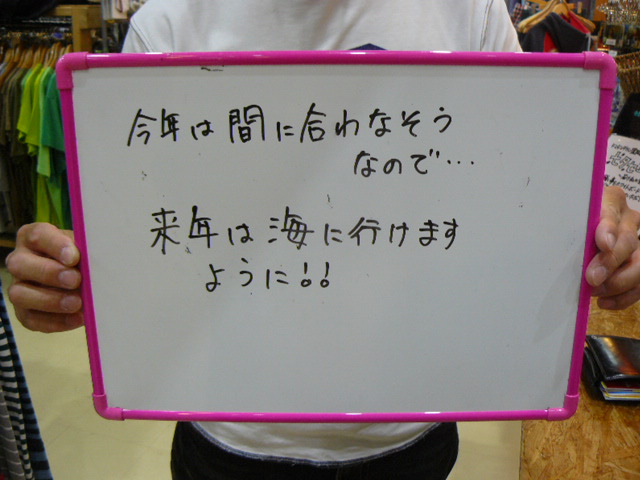 今年は間に合わなそう
なので…
来年は海に行けます
ように!!